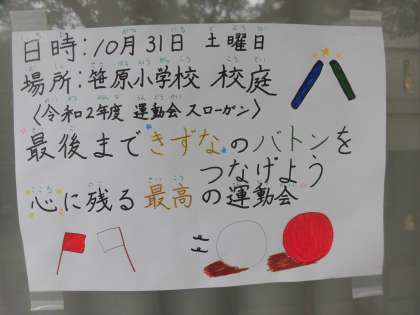 日時：10月31日 土曜日
場所：笹原小学校 校庭
〈令和2年度 運動会スローガン〉
最後まできずなのバトンを
つなげよう
心に残る最高の運動会